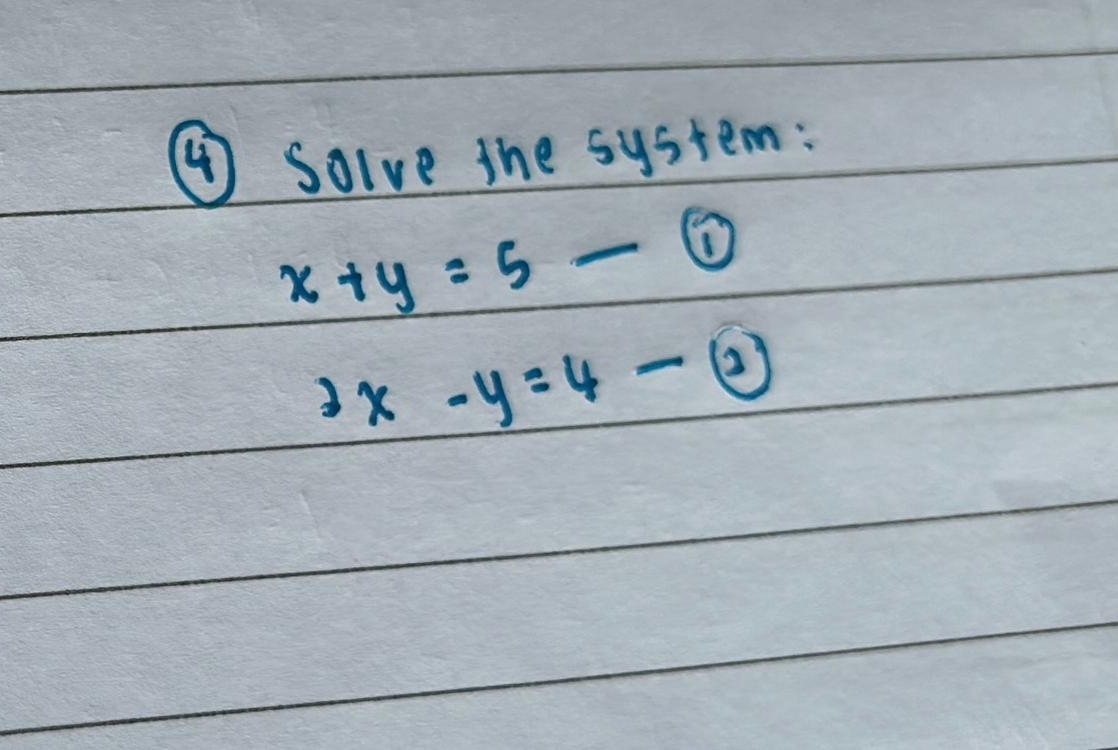 ④ Solve the system:
x + y = 5 — ①
2x - y = 4 — ②